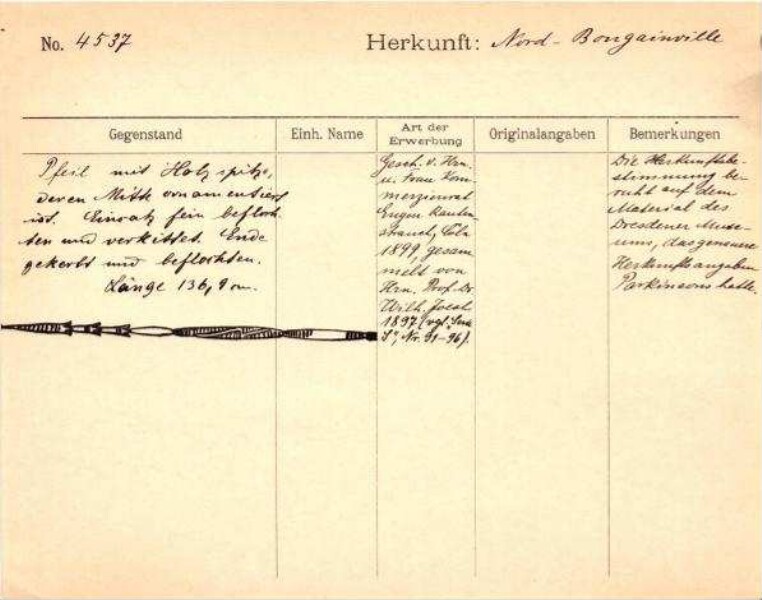 No. 4537
Herkunft: Nord-Bougainville
Gegenstand
Einh. Name
Art der
Erwerbung
Originalangaben
Bemerkungen
Pfeil mit Holzspitze,
deren Mitte ornamentiert
ist. Einsatz fein befloch-
ten und verkittet. Ende
gekerbt und beflochten.
Länge 136,9 cm.
Gesch. v. Hrn.
u. Frau Kom-
merzienrat
Eugen Rauten-
strauch, Cöln
1899, gesam
melt von
Hrn. Prof. Dr.
Wilh. Joest
1897 (vgl.
Nr. 91-96).
Die Herkunftsbe-
stimmung be-
ruht auf dem
Material des
Dresdener Muse-
ums, das genauere
Herkunftsangaben
Parkinsons hatte.